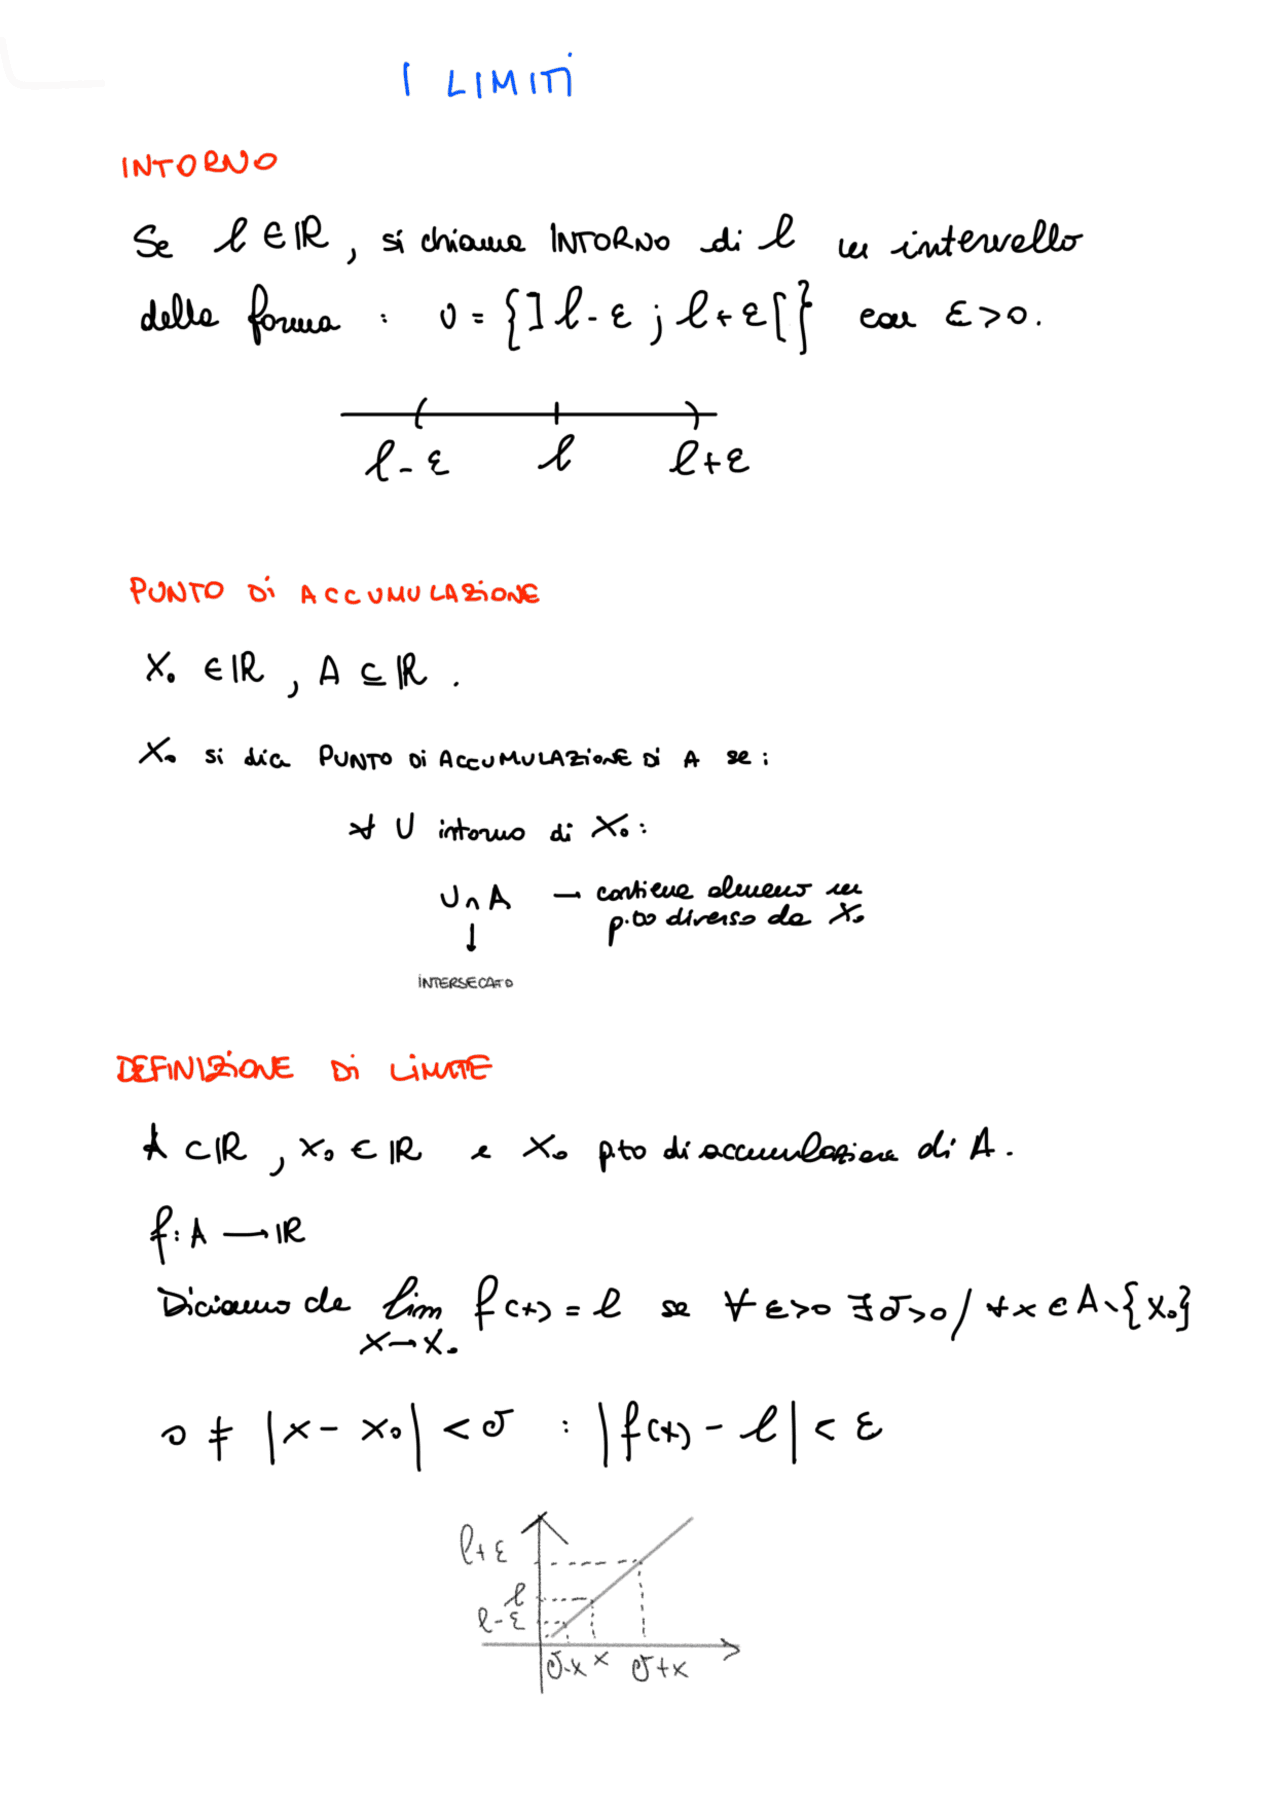 I LIMITI
INTORNO
Se ℓ ∈ ℝ, si chiama INTORNO di ℓ un intervallo
della forma : U = {]ℓ-ε ; ℓ+ε[} con ε>0.
ℓ-ε ℓ ℓ+ε
PUNTO Di ACCUMULAZiONE
X₀ ∈ ℝ , A ⊆ ℝ .
X₀ si dica PUNTO Di ACCUMULAZiONE Di A se :
∀ U intorno di X₀ :
U∩A → contiene almeno un
p.to diverso da X₀
↓
iNTERSECATO
DEFINIZiONE Di LiMITE
A ⊂ ℝ , x₀ ∈ ℝ e X₀ p.to di accumulazione di A.
f: A → ℝ
Diciamo che lim f(x) = ℓ se ∀ ε>0 ∃ σ>0 / ∀ x ∈ A\{X₀}
X→X₀
0 ≠ |x - x₀| < σ : |f(x) - ℓ| < ε
ℓ+ε
ℓ
ℓ-ε
σ-x x σ+x